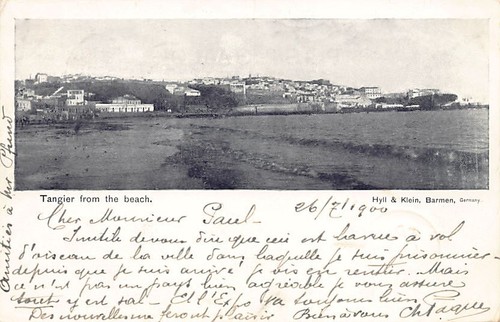 Tangier from the beach.
Hyll & Klein, Barmen, Germany
Cher Monsieur Paul - 26/7/1900
Inutile de vous dire que ceci est la vue à vol
d'oiseau de la ville dans laquelle je suis prisonnier -
depuis que je suis arrivé je vis en rentier. Mais
ce n'est pas un pays bien agréable je vous assure
tout y est sal - Et l'Expo va toujours bien
Des nouvelles me feront plaisir Bien à vous
Amitiés à Mr